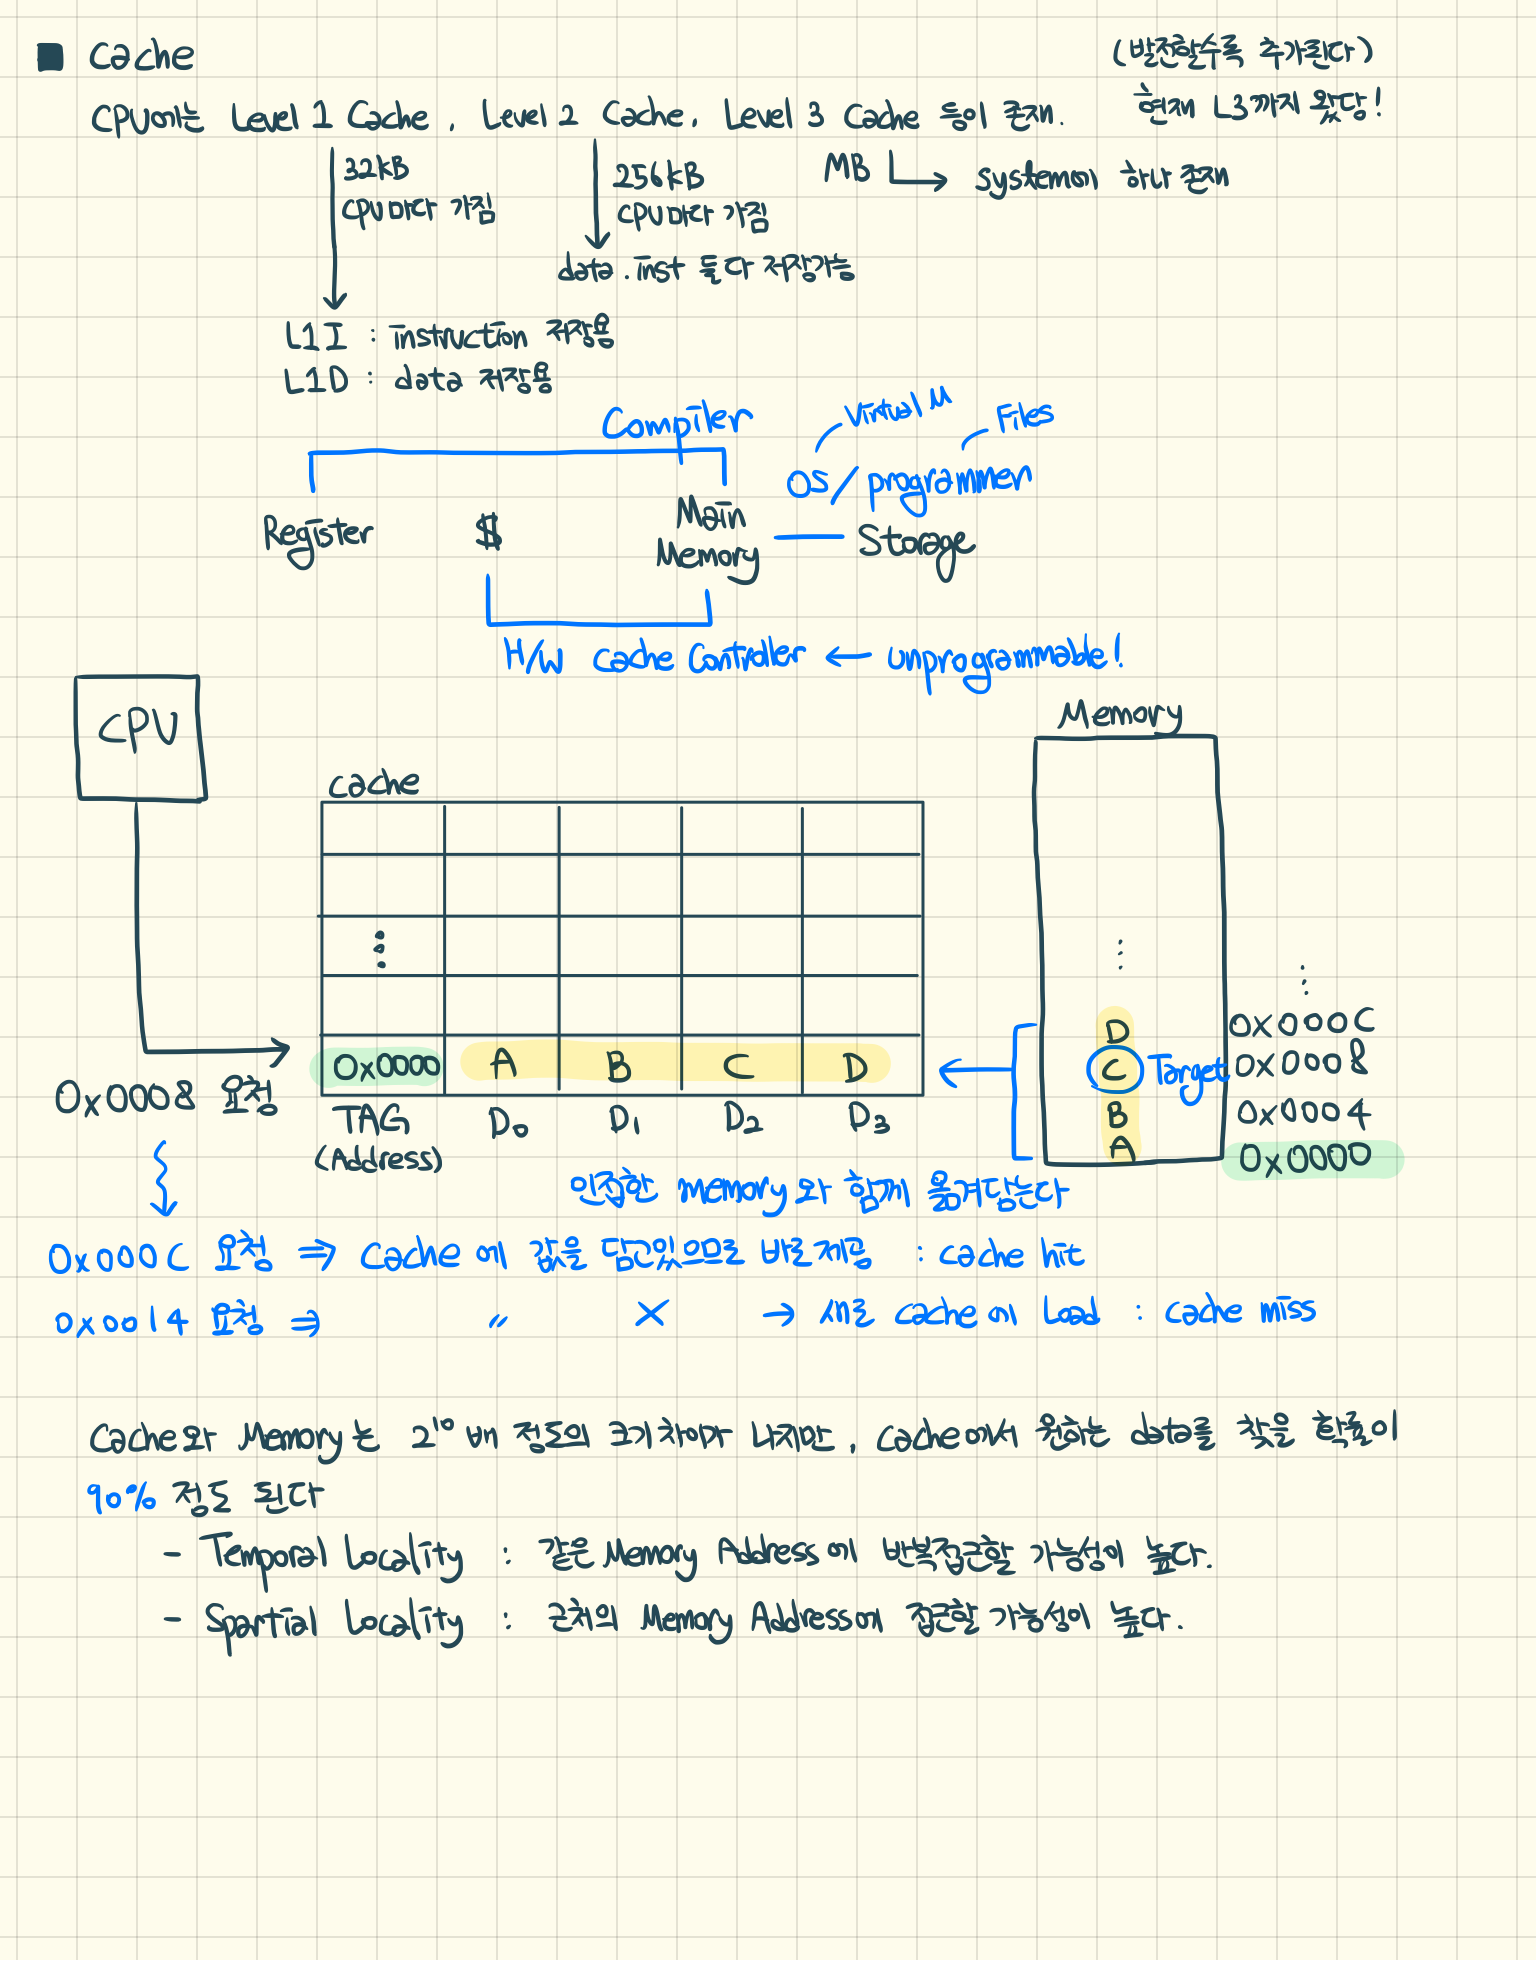 ■ Cache
(발전할수록 추가된다)
CPU에는 Level 1 Cache, Level 2 Cache, Level 3 Cache 등이 존재.
현재 L3까지 왔당!
32kB
CPU마다 가짐
256kB
CPU마다 가짐
MB
system에 하나 존재
data, inst 둘다 저장가능
L1I : instruction 저장용
L1D : data 저장용
Compiler
Virtual M
Files
OS/programmer
Register
$
Main
Memory
Storage
H/W cache Controller ← unprogrammable!
CPU
Memory
cache
⋮
⋮
⋮
D
0x000C
C
Target
0x0008
B
0x0004
A
0x0000
0x0000 A B C D
0x0008 요청
TAG
(Address)
D₀ D₁ D₂ D₃
인접한 memory와 함께 옮겨담는다
0x000C 요청 ⇒ Cache에 값을 담고있으므로 바로제공 : cache hit
0x0014 요청 ⇒ 〃 X → 새로 cache에 Load : cache miss
Cache와 Memory는 2¹⁰배 정도의 크기차이가 나지만, Cache에서 원하는 data를 찾을 확률이
90% 정도 된다
- Temporal Locality : 같은 Memory Address에 반복접근할 가능성이 높다.
- Spartial Locality : 근처의 Memory Address에 접근할 가능성이 높다.